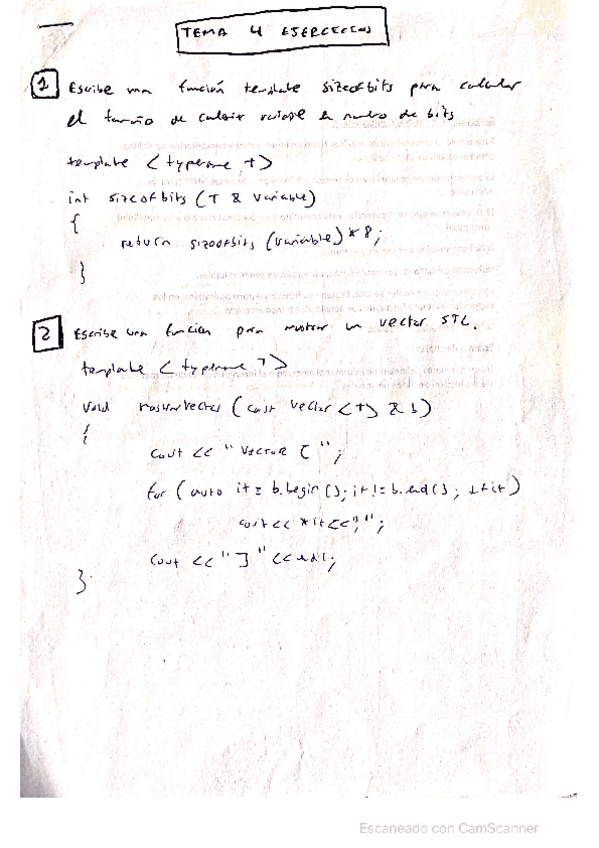 TEMA 4 EJERCICIOS
1 Escribe una función template sizeofbits para calcular
el tamaño de cualquier variable en numero de bits
template <typename T>
int sizeofbits (T & variable)
{
return sizeofbits (variable) * 8;
}
2 Escribe una funcion para mostrar un vector STL.
template <typename T>
void mostrarVector (const vector <T> & b)
{
cout << "VECTOR [";
for (auto it = b.begin(); it != b.end(); ++it)
cout << *it << ",";
cout << "]" << endl;
}
Escaneado con CamScanner